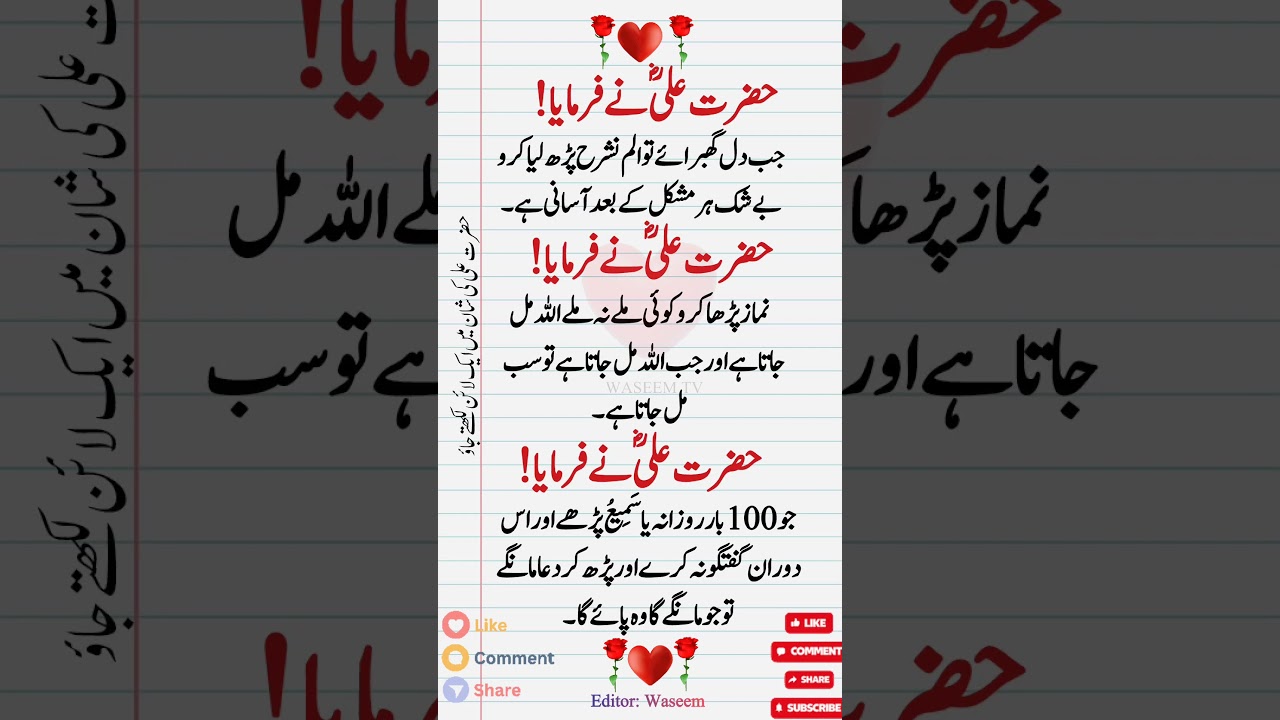 حضرت علیؓ نے فرمایا!
جب دل گھبرائے تو الم نشرح پڑھ لیا کرو
بے شک ہر مشکل کے بعد آسانی ہے۔
حضرت علیؓ نے فرمایا!
نماز پڑھا کرو کوئی ملے نہ ملے اللہ مل
جاتا ہے اور جب اللہ مل جاتا ہے تو سب
مل جاتا ہے۔
حضرت علیؓ نے فرمایا!
جو 100 بار روزانہ یا سَمِیعُ پڑھے اور اس
دوران گفتگو نہ کرے اور پڑھ کر دعا مانگے
تو جو مانگے گا وہ پائے گا۔
حضرت علی کی شان میں ایک لائن لکھتے جاؤ
WASEEM TV
Like
Comment
Share
Editor: Waseem
LIKE
COMMENT
SHARE
SUBSCRIBE
ت علی کی شان میں ایک لائن لکھتے جاؤ
مایا!
نماز پڑھا
ملے اللہ مل
جاتا ہے اور
ہے تو سب
حضرت